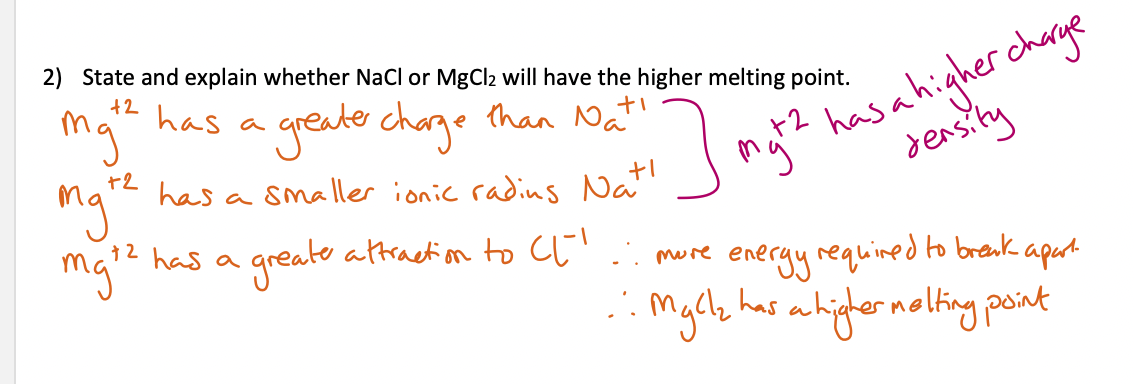 2) State and explain whether NaCl or MgCl₂ will have the higher melting point.
Mg⁺² has a greater charge than Na⁺¹
Mg⁺² has a smaller ionic radius Na⁺¹
Mg⁺² has a higher charge
density
Mg⁺² has a greate attraction to Cl⁻¹ ∴ more energy required to break apart
∴ MgCl₂ has a higher melting point